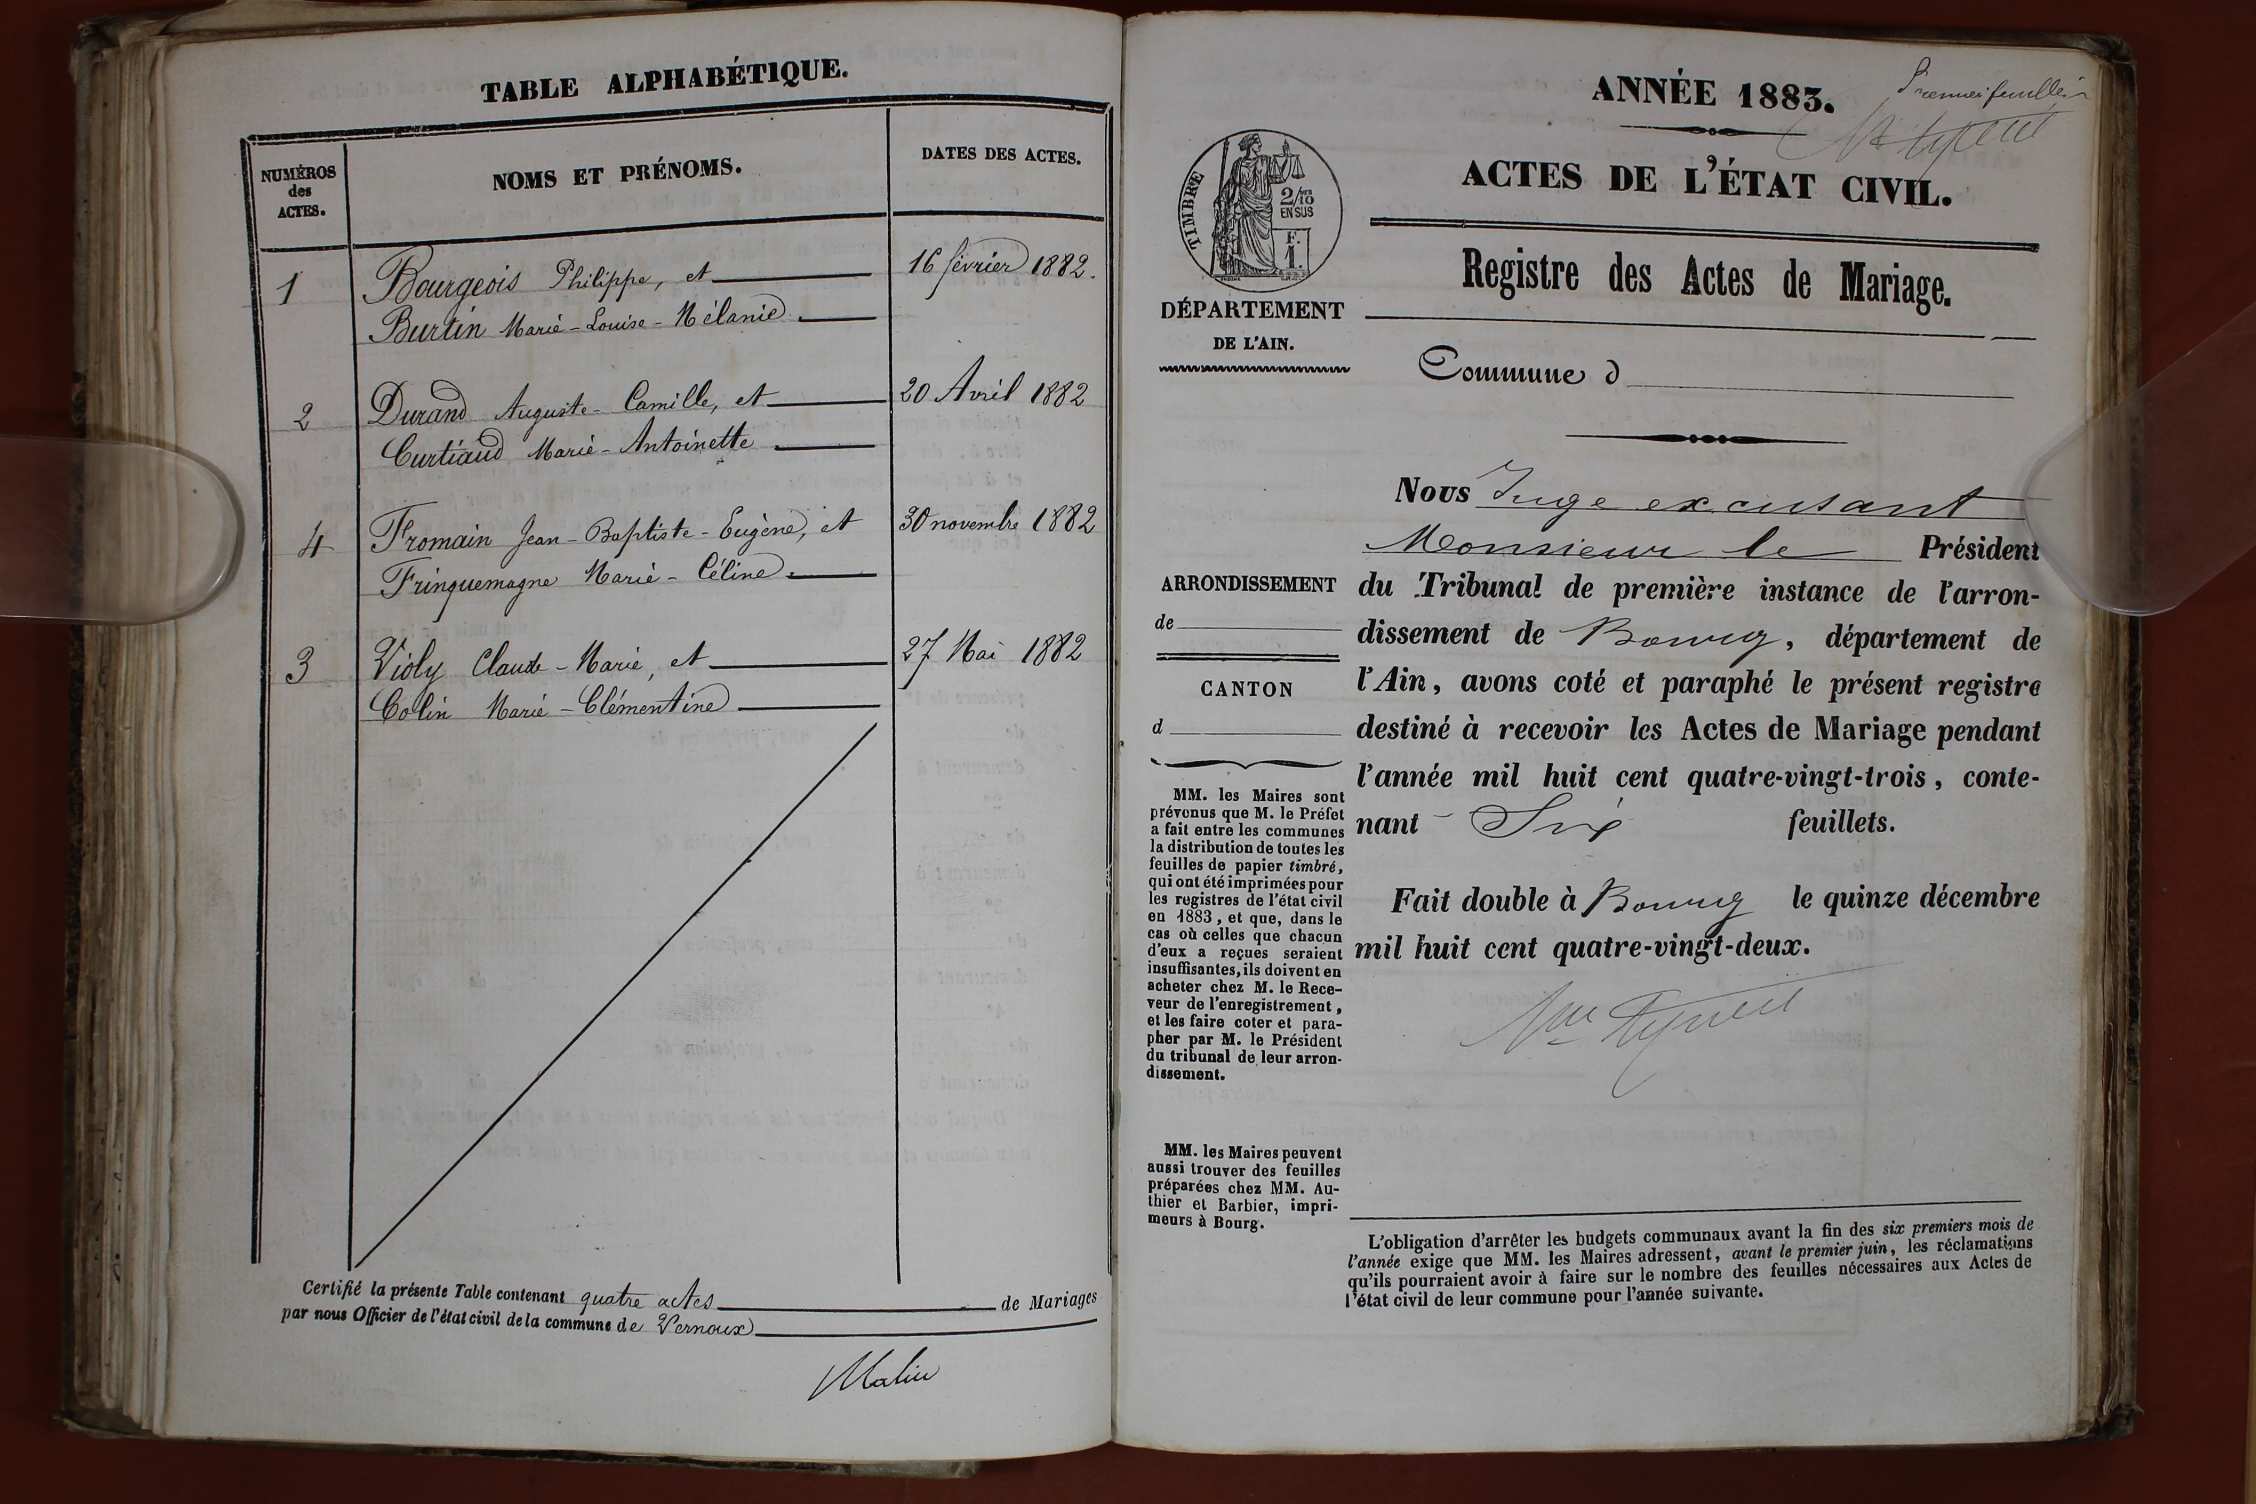 TABLE ALPHABÉTIQUE.
NUMÉROS
des
ACTES.
NOMS ET PRÉNOMS.
DATES DES ACTES.
1 Bourgeois Philippe, et 16 février 1882.
Burtin Marie-Louise-Mélanie.
2 Durand Auguste-Camille, et 20 Avril 1882
Curtiaud Marie-Antoinette
4 Fromain Jean-Baptiste-Eugène, et 30 novembre 1882
Fringuemagne Marie-Céline.
3 Violy Claude-Marie, et 27 Mai 1882
Colin Marie-Clémentine
Certifié la présente Table contenant quatre actes de Mariages
par nous Officier de l'état civil de la commune de Vernoux
ANNÉE 1883.
Premier feuillet
ACTES DE L'ÉTAT CIVIL.
TIMBRE
2/10
EN SUS
F.
1.
Registre des Actes de Mariage.
DÉPARTEMENT
DE L'AIN.
Commune d
ARRONDISSEMENT
de
CANTON
d
MM. les Maires sont
prévenus que M. le Préfet
a fait entre les communes
la distribution de toutes les
feuilles de papier timbré,
qui ont été imprimées pour
les registres de l'état civil
en 1883, et que, dans le
cas où celles que chacun
d'eux a reçues seraient
insuffisantes, ils doivent en
acheter chez M. le Rece-
veur de l'enregistrement,
et les faire coter et para-
pher par M. le Président
du tribunal de leur arron-
dissement.
MM. les Maires peuvent
aussi trouver des feuilles
préparées chez MM. Au-
thier et Barbier, impri-
meurs à Bourg.
Nous Juge excusant
Monsieur le Président
du Tribunal de première instance de l'arron-
dissement de Bourg, département de
l'Ain, avons coté et paraphé le présent registre
destiné à recevoir les Actes de Mariage pendant
l'année mil huit cent quatre-vingt-trois, conte-
nant Six feuillets.
Fait double à Bourg le quinze décembre
mil huit cent quatre-vingt-deux.
L'obligation d'arrêter les budgets communaux avant la fin des six premiers mois de
l'année exige que MM. les Maires adressent, avant le premier juin, les réclamations
qu'ils pourraient avoir à faire sur le nombre des feuilles nécessaires aux Actes de
l'état civil de leur commune pour l'année suivante.